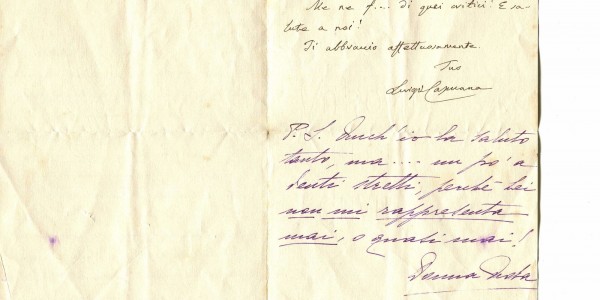 Me ne f... di quei critici! E sa-
lute a noi!
Ti abbraccio affettuosamente.
Tuo
Luigi Capuana
P. S. Anch'io la saluto
tanto, ma.... un po' a
denti stretti, perché lei
non mi rappresenta
mai, o quasi mai!
Donna